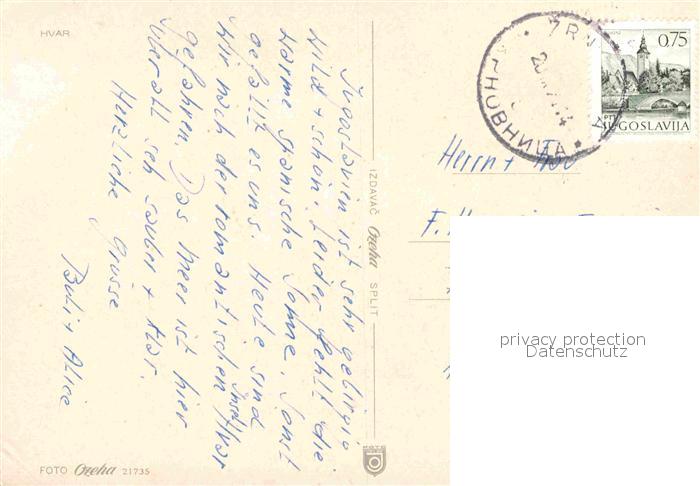 HVAR
Jugoslavien ist sehr gebirgig
wild + schön. Leider fehlt die
warme spanische Sonne. Sonst
gefällt es uns. Heute sind
wir nach der romantischen Insel Hvar
gefahren. Das Meer ist hier
überall seh sauber + klar.
Herzliche Grüsse
+ Alice
FOTO Ozeha 21735
IZDAVAČ Ozeha SPLIT
0,75
JUGOSLAVIJA
Herrn +
F.
privacy protection
Datenschutz